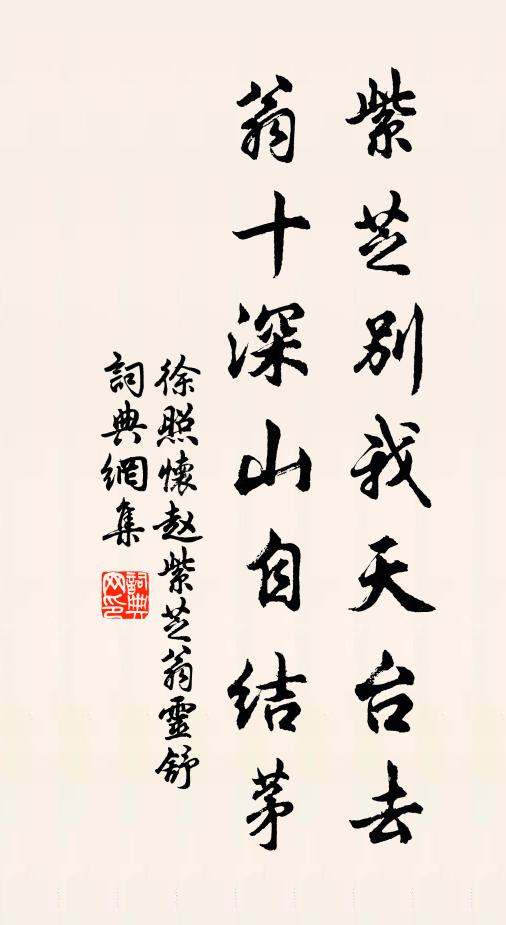 紫芝別我天台去
翁十深山自结茅
徐照懷赵紫芝翁靈舒
詞典網集
詞典网印